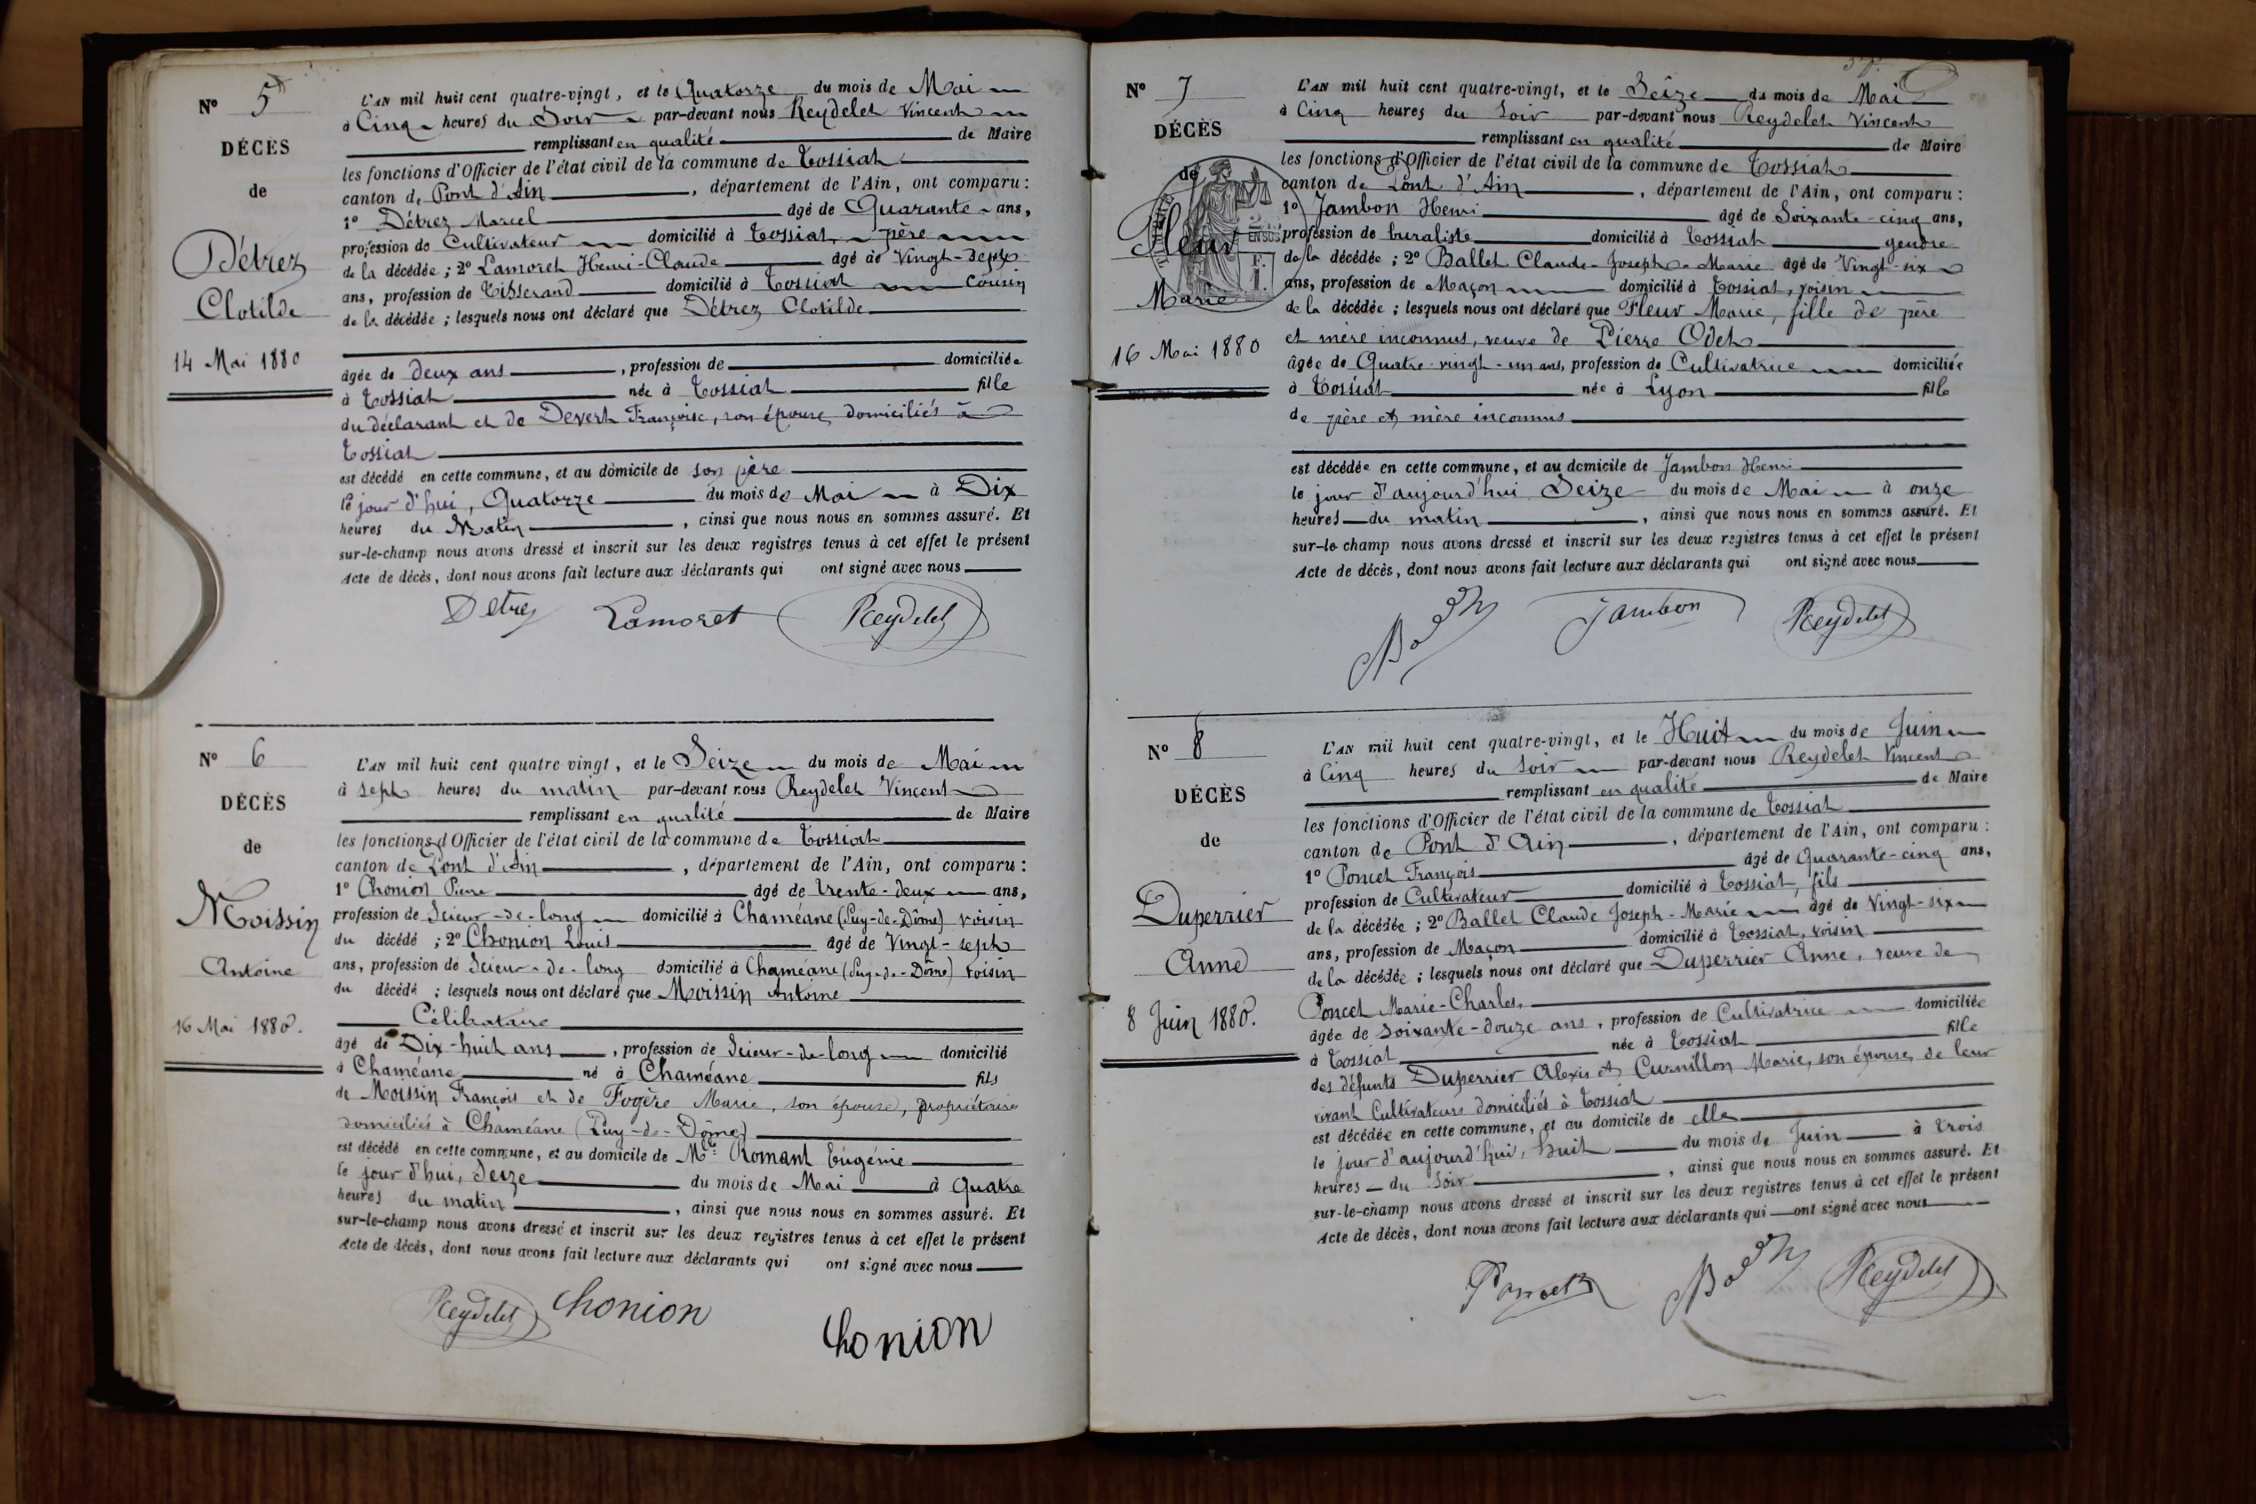 N° 5
DÉCÈS
de
Détrez
Clotilde
14 Mai 1880
L'AN mil huit cent quatre-vingt, et le Quatorze du mois de Mai
à Cinq heures du Soir par-devant nous Reydelet Vincent
remplissant en qualité de Maire
les fonctions d'Officier de l'état civil de la commune de Tossiat
canton de Pont d'Ain, département de l'Ain, ont comparu :
1° Détrez Marcel âgé de Quarante ans,
profession de Cultivateur domicilié à Tossiat, père
de la décédée ; 2° Lamoret Henri-Claude âgé de Vingt-sept
ans, profession de Tisserand domicilié à Tossiat Cousin
de la décédée ; lesquels nous ont déclaré que Détrez Clotilde
âgée de deux ans, profession de domiciliée
à Tossiat née à Tossiat fille
du déclarant et de Devert Françoise, son épouse, domiciliés à
Tossiat
est décédé en cette commune, et au domicile de son père
le jour d'hui, Quatorze du mois de Mai à Dix
heures du Matin, ainsi que nous nous en sommes assuré. Et
sur-le-champ nous avons dressé et inscrit sur les deux registres tenus à cet effet le présent
Acte de décès, dont nous avons fait lecture aux déclarants qui ont signé avec nous
Détrez Lamoret Reydelet
N° 6
DÉCÈS
de
Moissin
Antoine
16 Mai 1880.
L'AN mil huit cent quatre vingt, et le Seize du mois de Mai
à sept heures du matin par-devant nous Reydelet Vincent
remplissant en qualité de Maire
les fonctions d'Officier de l'état civil de la commune de Tossiat
canton de Pont d'Ain, département de l'Ain, ont comparu :
1° Chonion Pierre âgé de trente-deux ans,
profession de Scieur-de-long domicilié à Chaméane (Puy-de-Dôme) voisin
du décédé ; 2° Chonion Louis âgé de Vingt-sept
ans, profession de Scieur-de-long domicilié à Chaméane (Puy-de-Dôme) voisin
du décédé ; lesquels nous ont déclaré que Moissin Antoine
Célibataire
âgé de Dix-huit ans, profession de Scieur-de-long domicilié
à Chaméane né à Chaméane fils
de Moissin François et de Fogère Marie, son épouse, propriétaires
domiciliés à Chaméane (Puy-de-Dôme)
est décédé en cette commune, et au domicile de Me Romant Eugénie
le jour d'hui, Seize du mois de Mai à Quatre
heures du matin, ainsi que nous nous en sommes assuré. Et
sur-le-champ nous avons dressé et inscrit sur les deux registres tenus à cet effet le présent
Acte de décès, dont nous avons fait lecture aux déclarants qui ont signé avec nous
Reydelet Chonion
Chonion
N° 7
DÉCÈS
de
Fleur
Marie
16 Mai 1880
L'AN mil huit cent quatre-vingt, et le Seize du mois de Mai
à Cinq heures du soir par-devant nous Reydelet Vincent
remplissant en qualité de Maire
les fonctions d'Officier de l'état civil de la commune de Tossiat
canton de Pont d'Ain, département de l'Ain, ont comparu :
1° Jambon Henri âgé de Soixante-cinq ans,
profession de buraliste domicilié à Tossiat gendre
de la décédée ; 2° Ballet Claude-Joseph-Marie âgé de Vingt-six
ans, profession de Maçon domicilié à Tossiat, voisin
de la décédée ; lesquels nous ont déclaré que Fleur Marie, fille de père
et mère inconnus, veuve de Pierre Odet
âgée de Quatre-vingt-un ans, profession de Cultivatrice domiciliée
à Tossiat née à Lyon fille
de père et mère inconnus
est décédée en cette commune, et au domicile de Jambon Henri
le jour d'aujourd'hui Seize du mois de Mai à onze
heures du matin, ainsi que nous nous en sommes assuré. Et
sur-le champ nous avons dressé et inscrit sur les deux registres tenus à cet effet le présent
Acte de décès, dont nous avons fait lecture aux déclarants qui ont signé avec nous
Jambon Reydelet
N° 8
DÉCÈS
de
Duperrier
Anne
8 Juin 1880.
L'AN mil huit cent quatre-vingt, et le Huit du mois de Juin
à Cinq heures du soir par-devant nous Reydelet Vincent
remplissant en qualité de Maire
les fonctions d'Officier de l'état civil de la commune de Tossiat
canton de Pont d'Ain, département de l'Ain, ont comparu :
1° Poncet François âgé de Quarante-cinq ans,
profession de Cultivateur domicilié à Tossiat, fils
de la décédée ; 2° Ballet Claude Joseph-Marie âgé de Vingt-six
ans, profession de Maçon domicilié à Tossiat, voisin
de la décédée ; lesquels nous ont déclaré que Duperrier Anne, veuve de
Poncet Marie-Charles,
âgée de soixante-douze ans, profession de Cultivatrice domiciliée
à Tossiat née à Tossiat fille
des défunts Duperrier Alexis et Curnillon Marie, son épouse, de leur
vivant Cultivateurs domiciliés à Tossiat
est décédée en cette commune, et au domicile de elle
le jour d'aujourd'hui, huit du mois de Juin à trois
heures du soir, ainsi que nous nous en sommes assuré. Et
sur-le-champ nous avons dressé et inscrit sur les deux registres tenus à cet effet le présent
Acte de décès, dont nous avons fait lecture aux déclarants qui ont signé avec nous
Poncet Reydelet